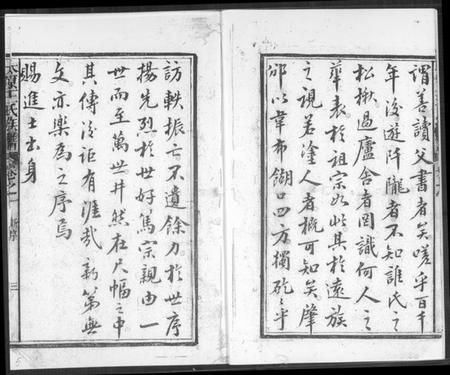 謂善讀父書者矣嗟乎百千
年後遊阡隴者不知誰氏之
松楸過廬舍者罔識何人之
華表於祖宗如此其於遠族
之視若塗人者概可知矣肇
邰以韋布餬口四方獨矻矻乎
訪軼振亡不遺餘力於世序
揚先烈於世好篤宗親由一
世而至萬世井然在尺幅之中
其傳後詎有涯哉新第無
文亦樂為之序焉
賜進士出身
太原王氏
新序
三